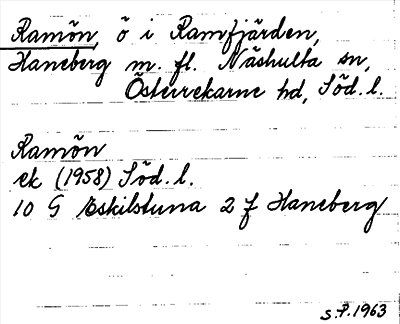 Ramön, ö i Ramfjärden,
Haneberg m. fl. Näshulta sn,
Österrekarne hd, Söd. l.
Ramön
ek (1958) Söd. l.
10 G Eskilstuna 2 f Haneberg
S.P. 1963